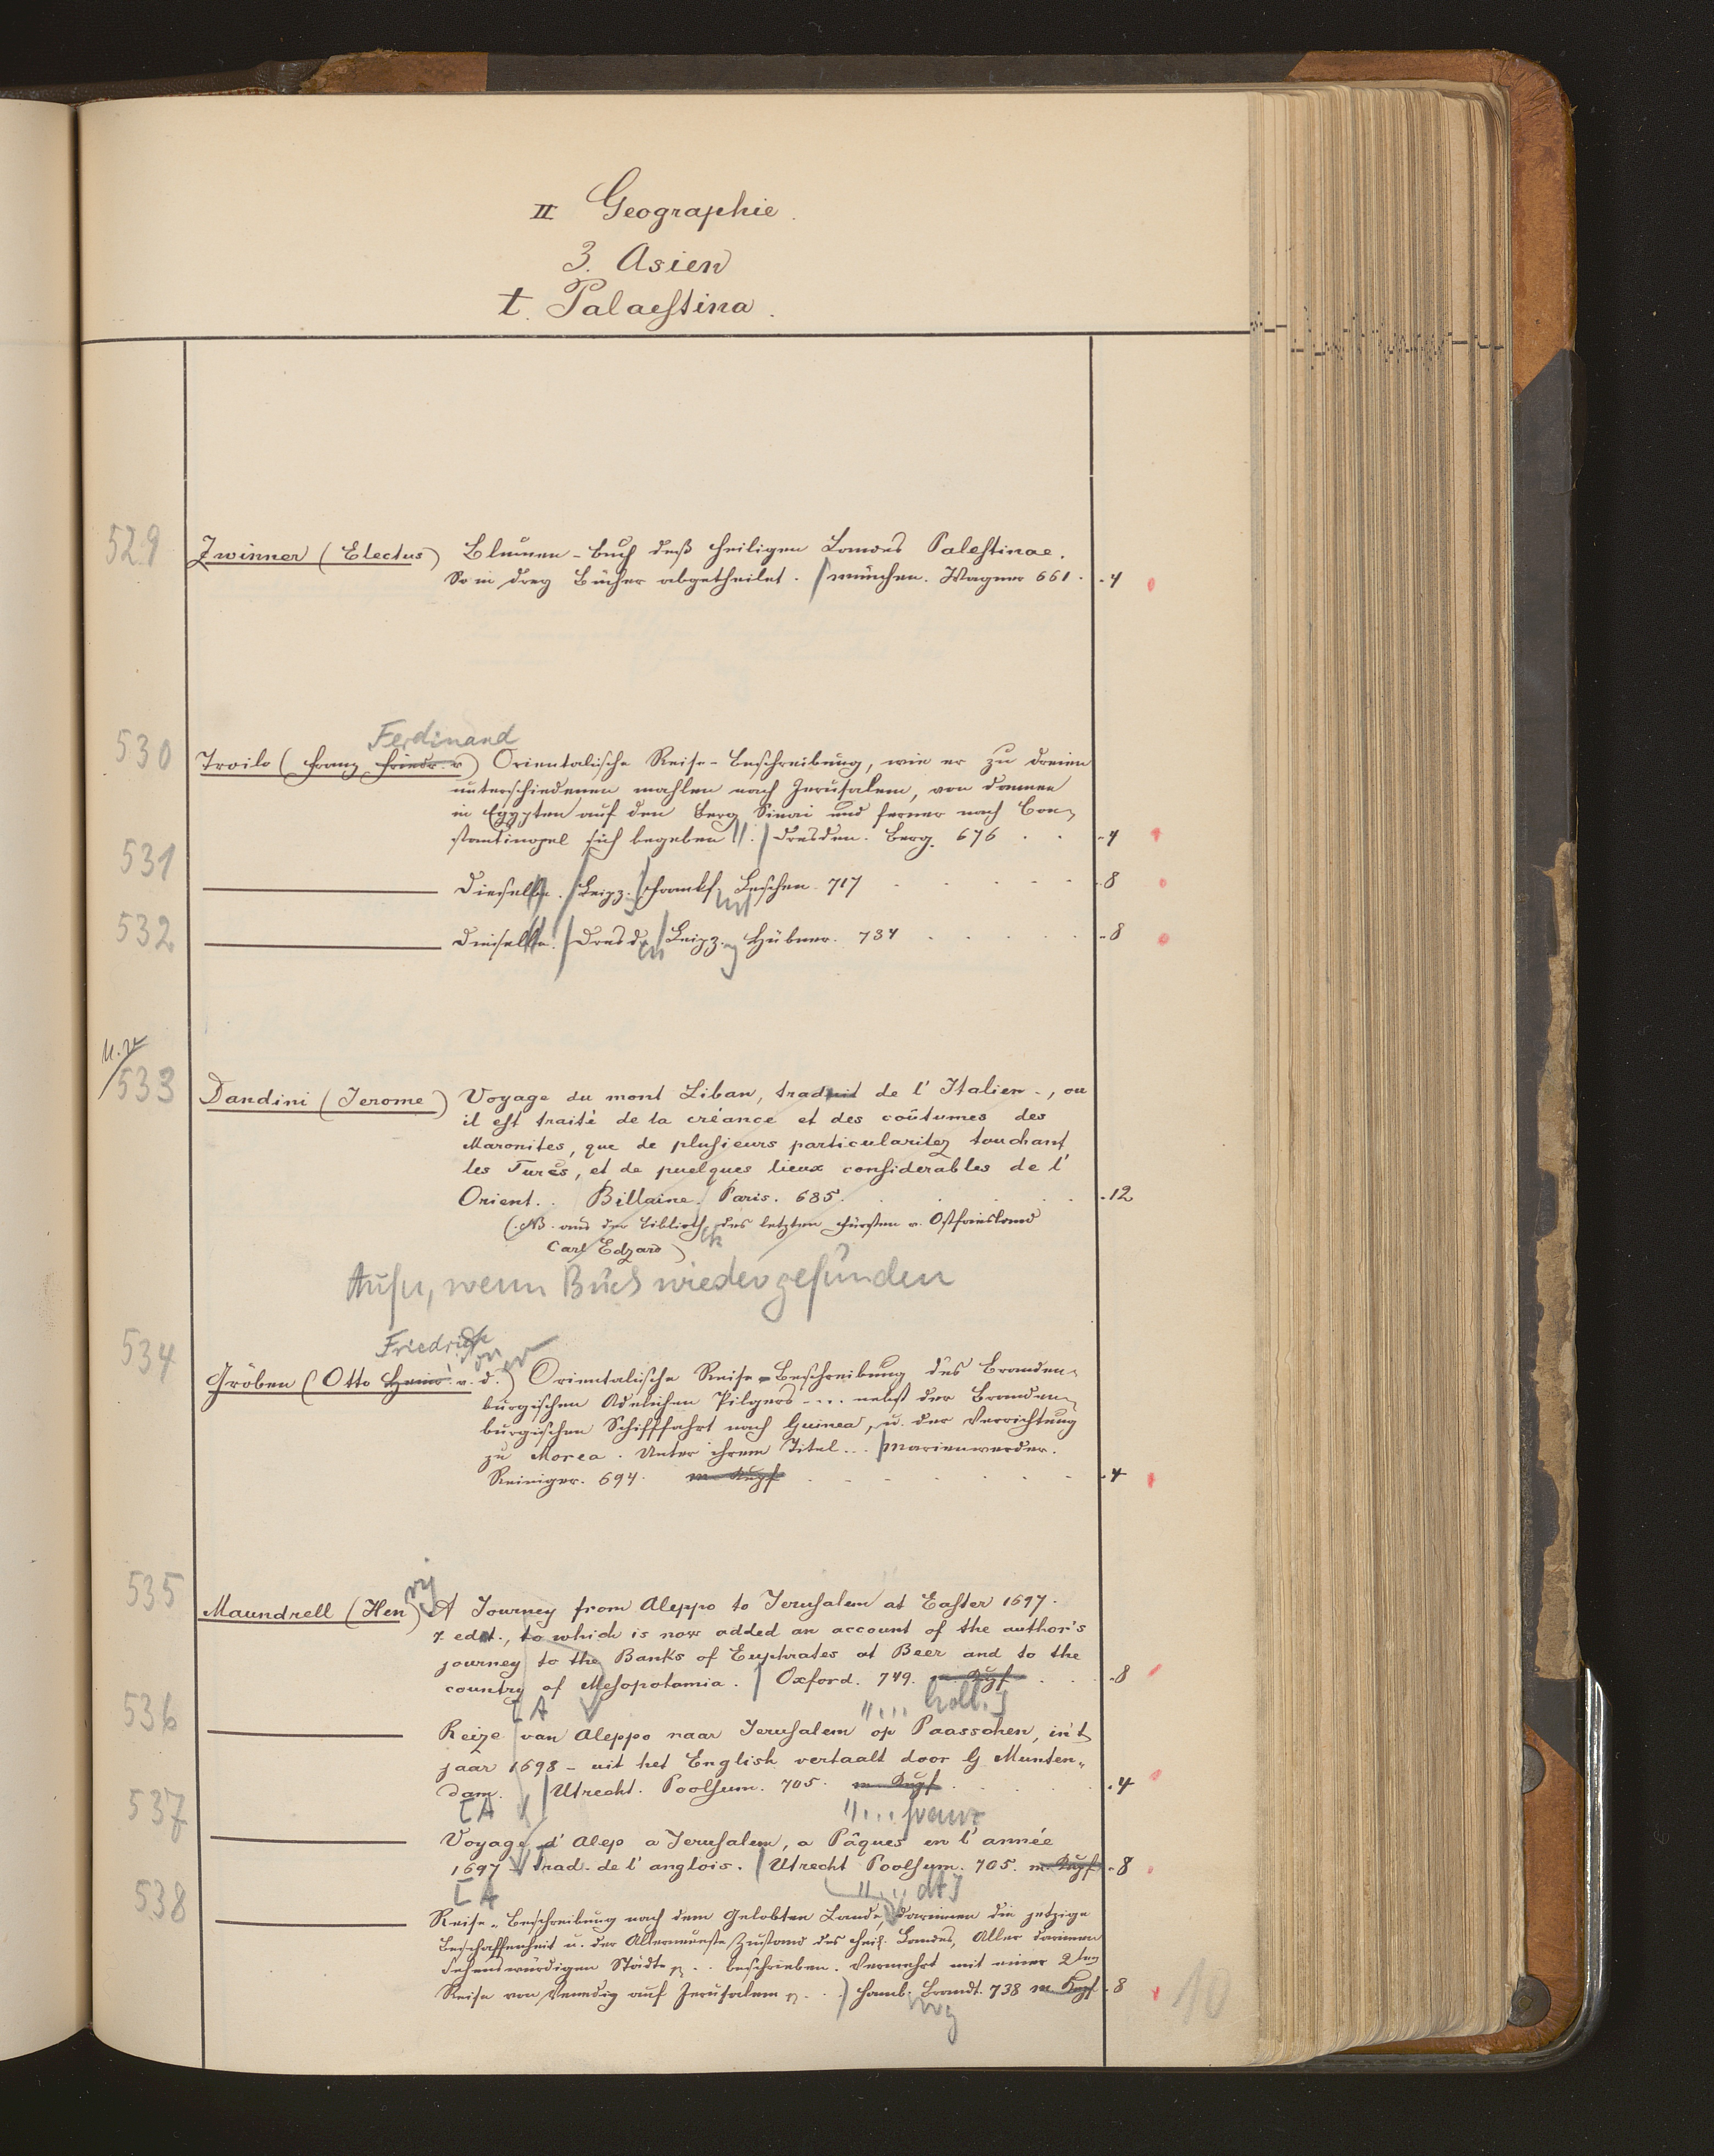 II Geographie.
3. Asien
t. Palaestina.
529
Zwinner (Electus) Blumen-Buch deß Heiligen Landes Palestinae.
So in drey Bücher abgetheilet. / München. Wagner 661. . 4
Ferdinand
530
Troilo (Franz Friedr. v) Orientalische Reise-Beschreibung, wie er zu dreien
unterschiedenen mahlen nach Jerusalem, von dannen
in Egypten auf den Berg Sinai und ferner nach Con-
stantinopel sich begeben. / Dresden. Berg. 676 . . . 4
531
Dieselbe. / Leipz. / Frankf. Leschen. 717 . 8
532
Dieselbe. / Dresd. / Leipz. Hübner. 734 . 8
533
Dandini (Jerome) Voyage du mont Liban, traduit de l'Italien -, ou
il est traité de la créance et des coûtumes des
Maronites, que de plusieurs particularitez touchant
les Turcs, et de quelques lieux considerables de l'
Orient. . Billaine. Paris. 685. . 12
(NB. aus der Biblioth. des letzten Fürsten v. Ostfriesland
Carl Edzard)
Aufn, wenn Buch wiedergefunden
Friedrich
534
on er
Gröben (Otto Heinr. v. d.) Orientalische Reise-Beschreibung des Branden-
burgischen Adelichen Pilgers - ... nebst der Branden-
burgischen Schifffahrt nach Guinea, u. der Verrichtung
zu Morea. Unter ihrem Titel... / Marienwerder.
Reiniger. 694. m Kupf . 4
535
ry
Maundrell (Hen) A Journey from Aleppo to Jerusalem at Easter 1697.
7. edit., to which is now added an account of the author's
journey to the Banks of Euphrates at Beer and to the
country of Mesopotamia. / Oxford. 749. m. Kupf . 8
[A "... holl.]
536
Reize van Aleppo naar Jerusalem op Paasschen, in't
jaar 1698 - uit het English vertaalt door G Munten-
dam. / Utrecht. Poolsum. 705. m. Kupf . 4
[A "... franz
537
Voyage d'Alep a Jerusalem, a Pâques en l'année
1697 - trad. de l'anglois. / Utrecht Poolsum. 705. m. Kupf . 8
[A "... dt]
538
Reise-Beschreibung nach dem Gelobten Lande, darinnen die jetzige
Beschaffenheit u. der Allerneueste Zustand des Heil. Landes, Aller darinnen
Sehenswürdigen Städte . . beschrieben. Vermehrt mit einer 2ten
Reise von Venedig auf Jerusalem . . ) Hamb. Brandt. 738 m. Kupf . 8
rg
10